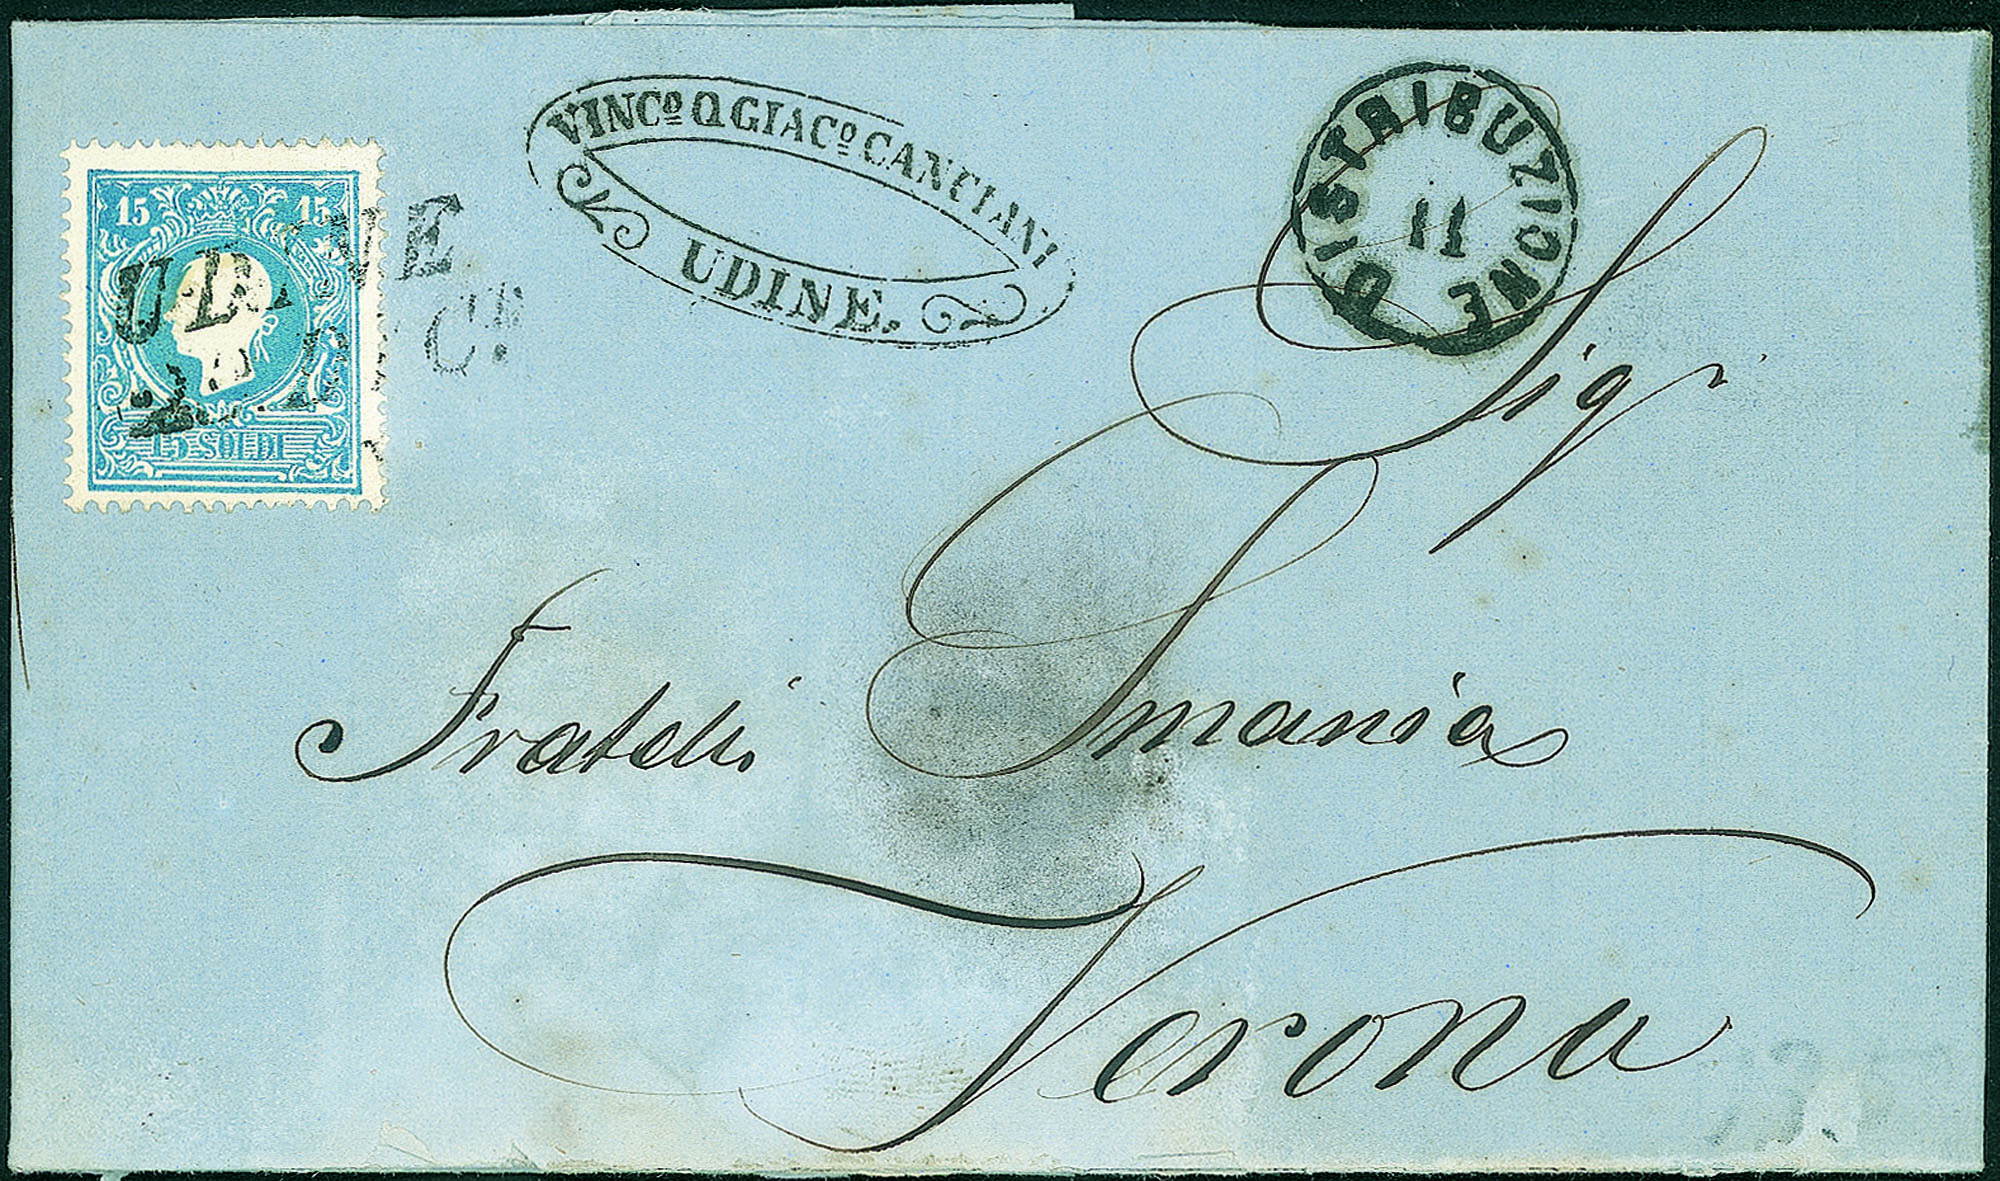 15 15
15 SOLDI
UDINE
VINCº Q GIACº CANCIANI
UDINE.
DISTRIBUZIONE
11
Sig
Fratelli Smania
Verona